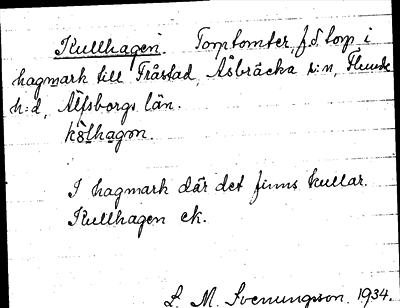 Kullhagen. Torptomter, f.d. torp i
hagmark till Fråstad, Åsbräcka s:n, Flundre
h:d, Älfsborgs län.
kölhagon.
I hagmark där det finns kullar.
Kullhagen ek.
L. M. Svenungsson. 1934.